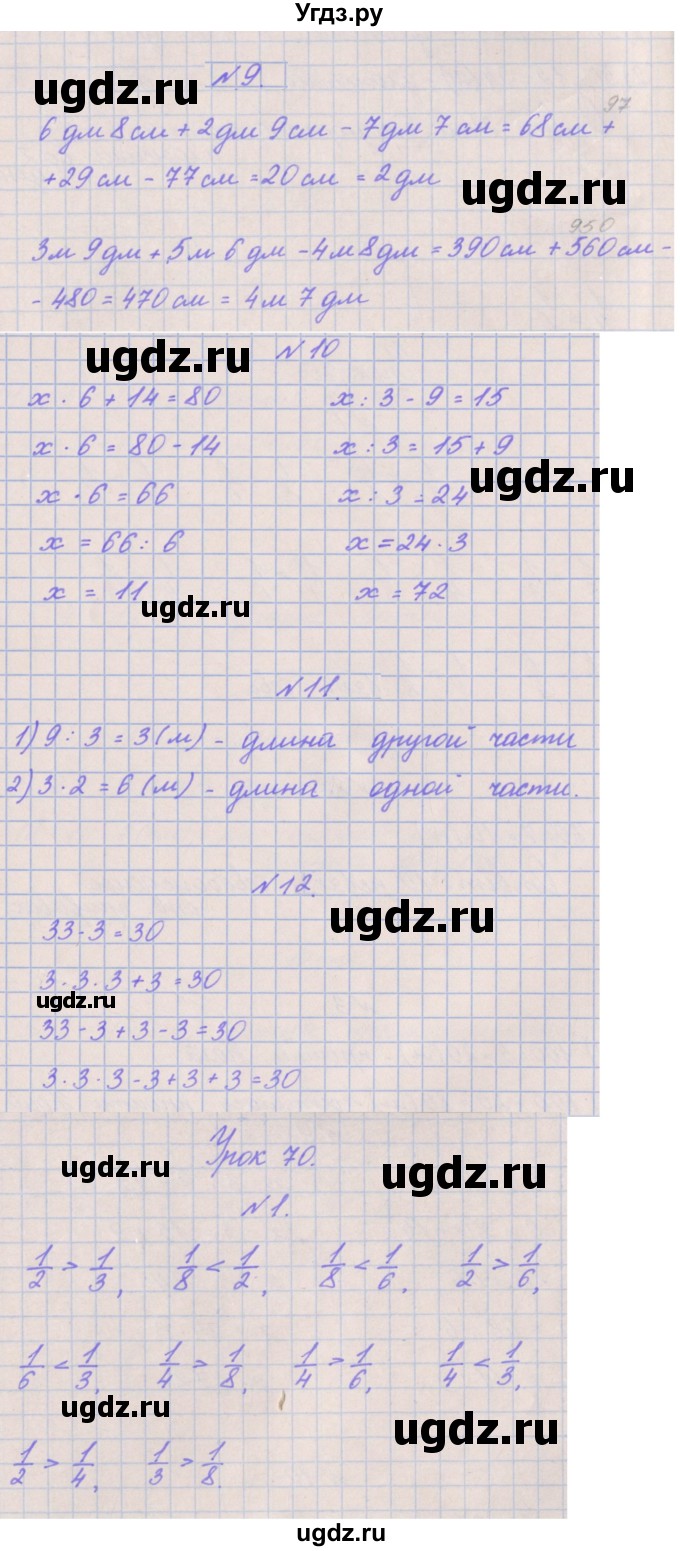 Угдз.ру
ugdz.ru
№9.
97
6 дм 8 см + 2 дм 9 см - 7 дм 7 см = 68 см +
+ 29 см - 77 см = 20 см = 2 дм
ugdz.ru
950
3 м 9 дм + 5 м 6 дм - 4 м 8 дм = 390 см + 560 см -
- 480 = 470 см = 4 м 7 дм
ugdz.ru
№10
x · 6 + 14 = 80
x · 6 = 80 - 14
x · 6 = 66
x = 66 : 6
x = 11
x : 3 - 9 = 15
x : 3 = 15 + 9
x : 3 = 24
x = 24 · 3
x = 72
ugdz.ru
ugdz.ru
№11.
1) 9 : 3 = 3 (м) - длина другой части
2) 3 · 2 = 6 (м) - длина одной части.
№12.
ugdz.ru
33 - 3 = 30
3 · 3 · 3 + 3 = 30
ugdz.ru
33 - 3 + 3 - 3 = 30
3 · 3 · 3 - 3 + 3 + 3 = 30
Урок 70.
ugdz.ru
ugdz.ru
№1.
1/2 > 1/3, 1/8 < 1/2, 1/8 < 1/6, 1/2 > 1/6,
1/6 < 1/3, 1/4 > 1/8, 1/4 > 1/6, 1/4 < 1/3,
ugdz.ru
ugdz.ru
1/2 > 1/4, 1/3 > 1/8.
ugdz.ru